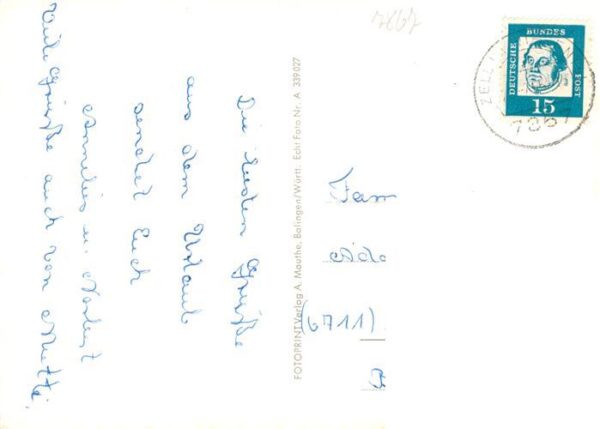 7867
DEUTSCHE
BUNDES
POST
15
ZELL
7867
Die besten Grüße
aus dem Urlaub
sendet Euch
Annelies u. Norbert
Viele Grüße auch von Mutti.
FOTOPRINT Verlag A. Mauthe, Balingen/Württ. Echt Foto Nr. A 339027
Fam
(6711)